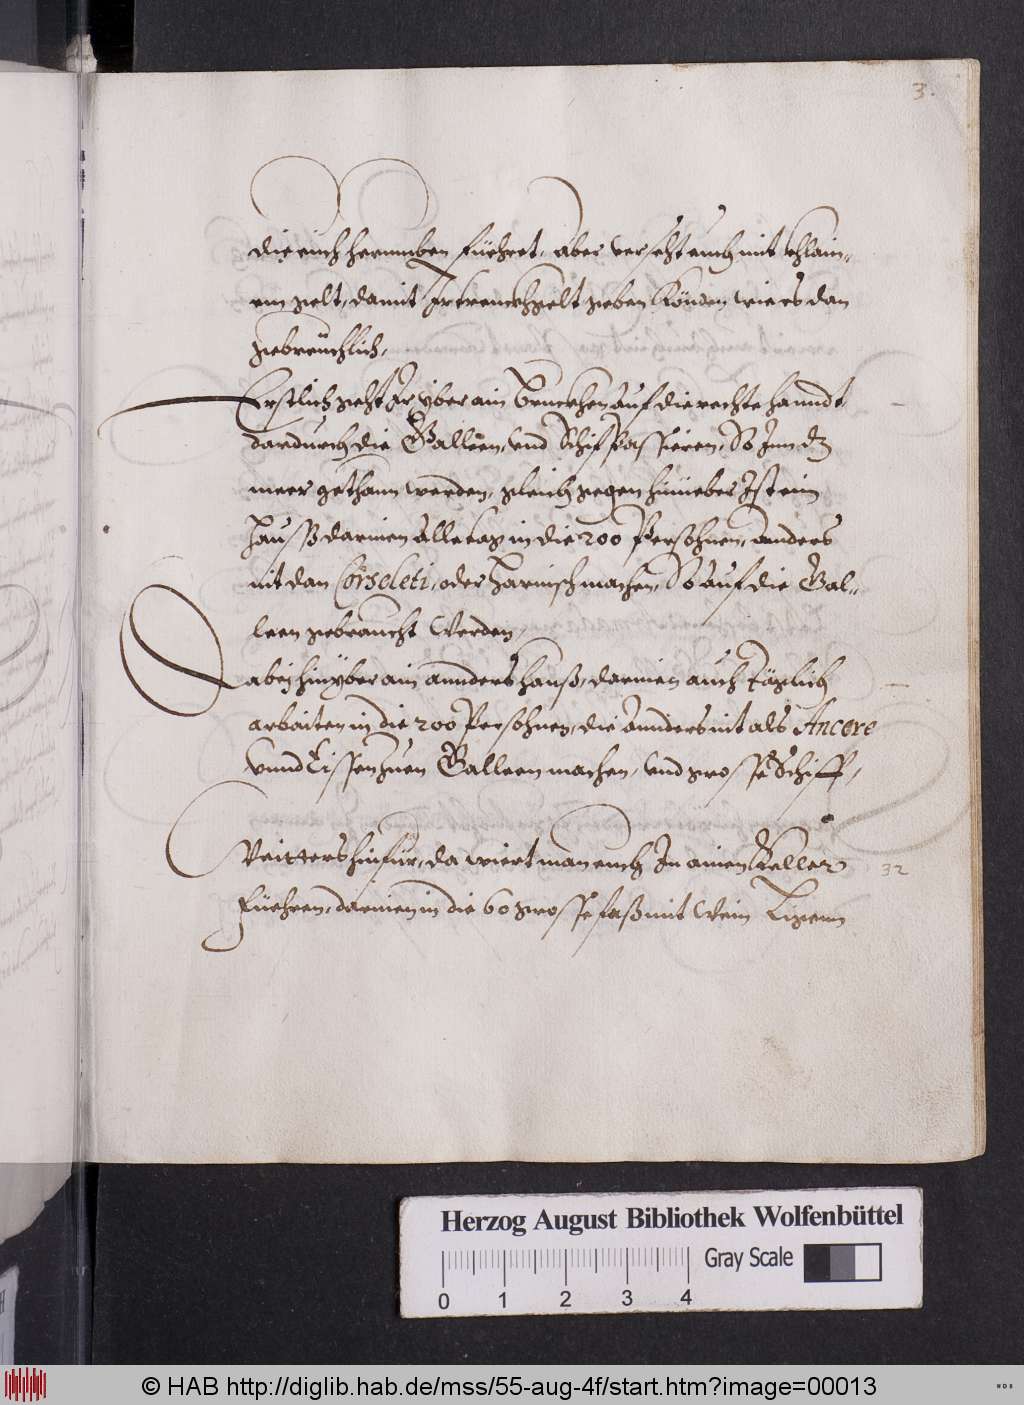 3.
die euch herumben füehret, aber verseht euch mit khlain-
em gelt, damit Ir trenckhgelt geben könden, wie es dan
gebreüchlich,
Erstlich geht Ir yber ain Bruckhen auf die rechte hanndt
dardurch die Galleen, und Schif Passieren, So Inn dz
meer gethann werden, gleich gegen hinueber Ist ein
Hauß darinen alle tag in die 200 Persohnen, anders
nit dan Corseleti, oder Harnisch machen, So auf die Gal-
leen gebraucht Werden,
Dabej hinyber ain annders hauß, darinen auch täglich
arbaiten in die 200 Persohnen, die annders nit als Ancore
vnnd Eissen zuen Galleen machen, und grosse Schiff,
Weitters hinfür, da wiert man euch In ainen Keller
füehren, darinen in die 60 grosse faß mit Wein Ligenn
32
Herzog August Bibliothek Wolfenbüttel
Gray Scale
0 1 2 3 4
© HAB http://diglib.hab.de/mss/55-aug-4f/start.htm?image=00013